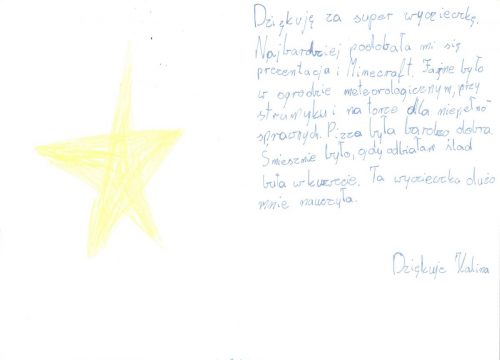 Dziękuję za super wycieczkę.
Najbardziej podobała mi się
prezentacja i Minecraft. Fajne było
w ogrodzie meteorologicznym, przy
strumyku i na torze dla niepełno
sprawnych. Pizza była bardzo dobra.
Śmiesznie było, gdy odbiałam ślad
buta w kurzcie. Ta wycieczka dużo
mnie nauczyła.
Dziękuje Kalina